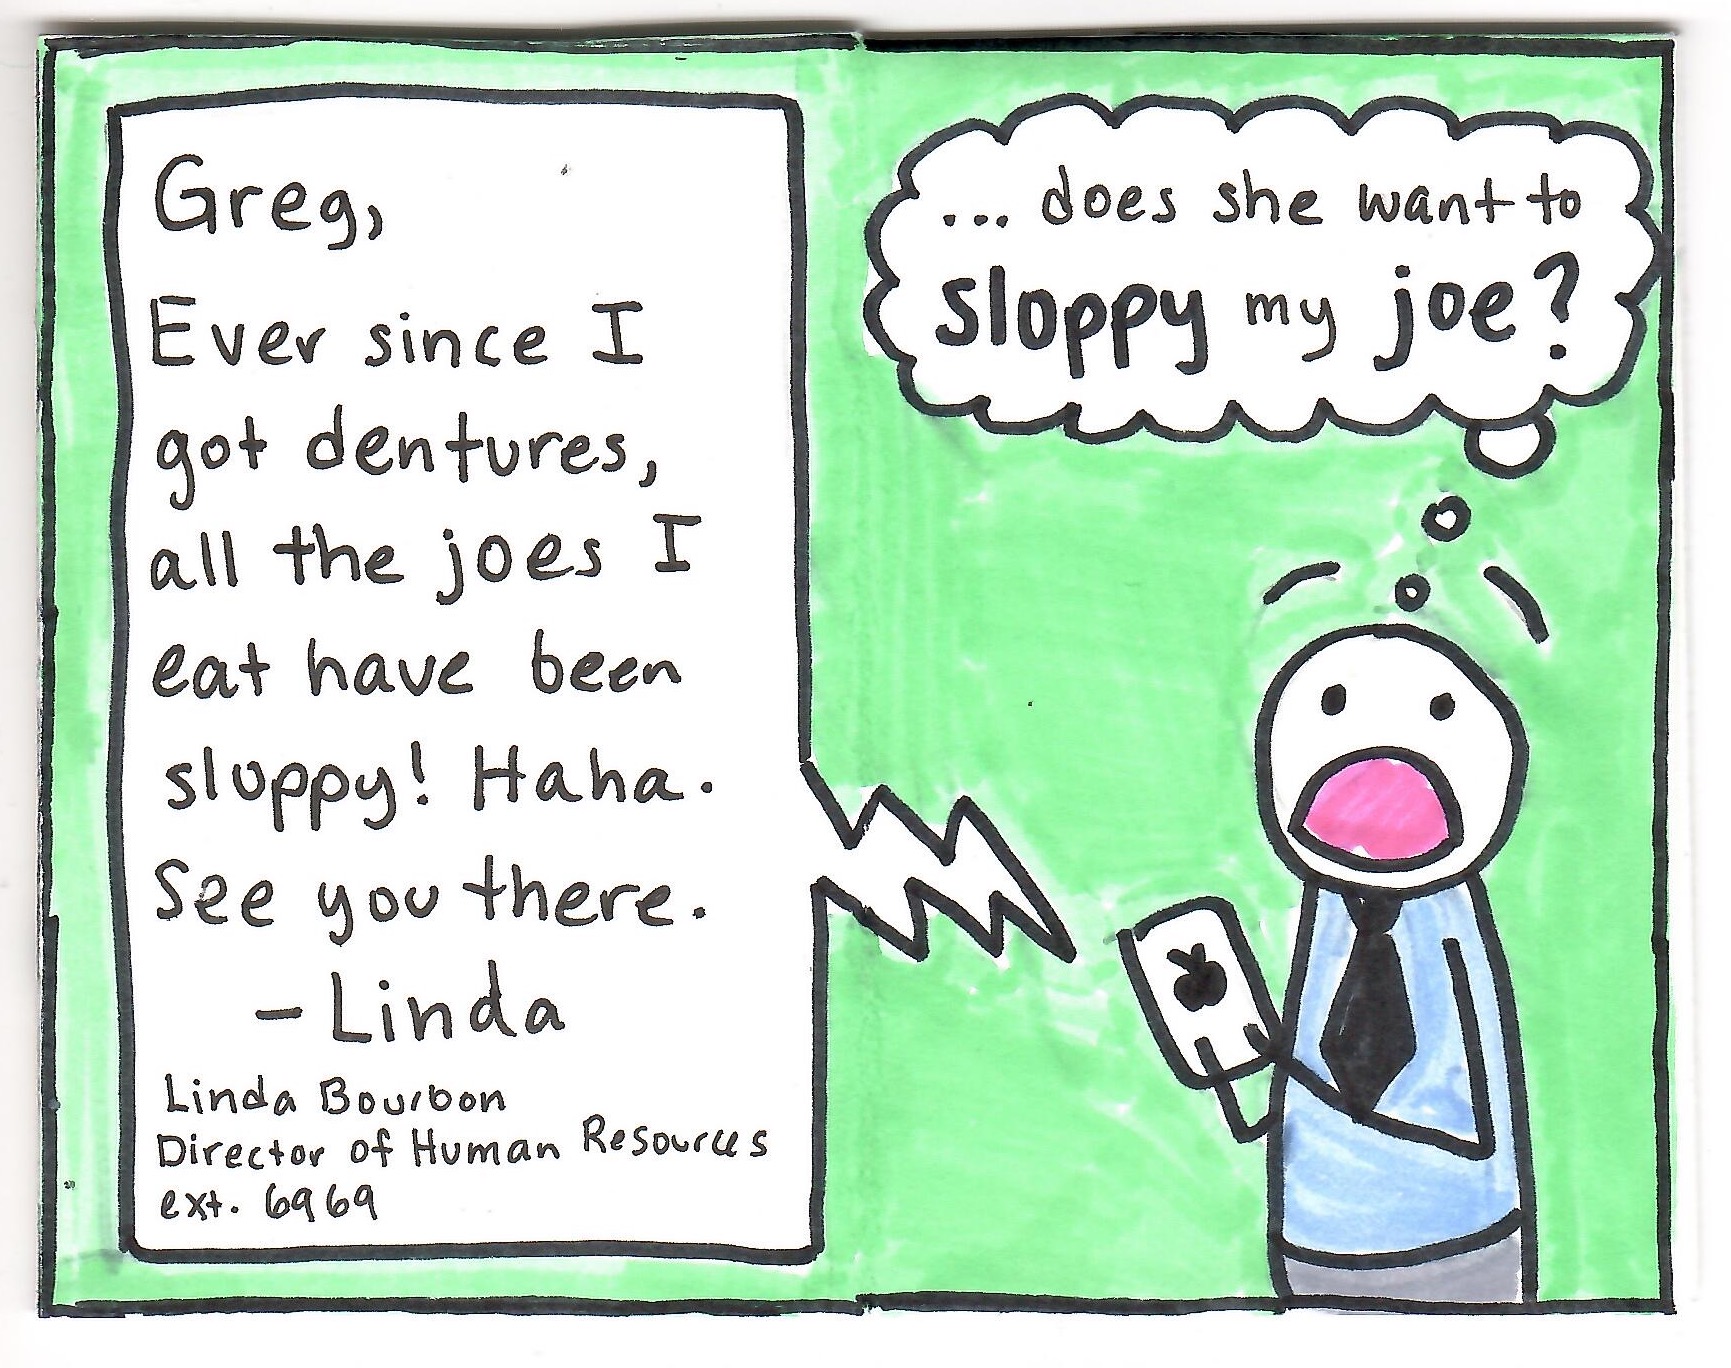 Greg,
Ever since I
got dentures,
all the joes I
eat have been
sloppy! Haha.
See you there.
- Linda
Linda Bourbon
Director of Human Resources
ext. 6969
... does she want to
sloppy my joe?